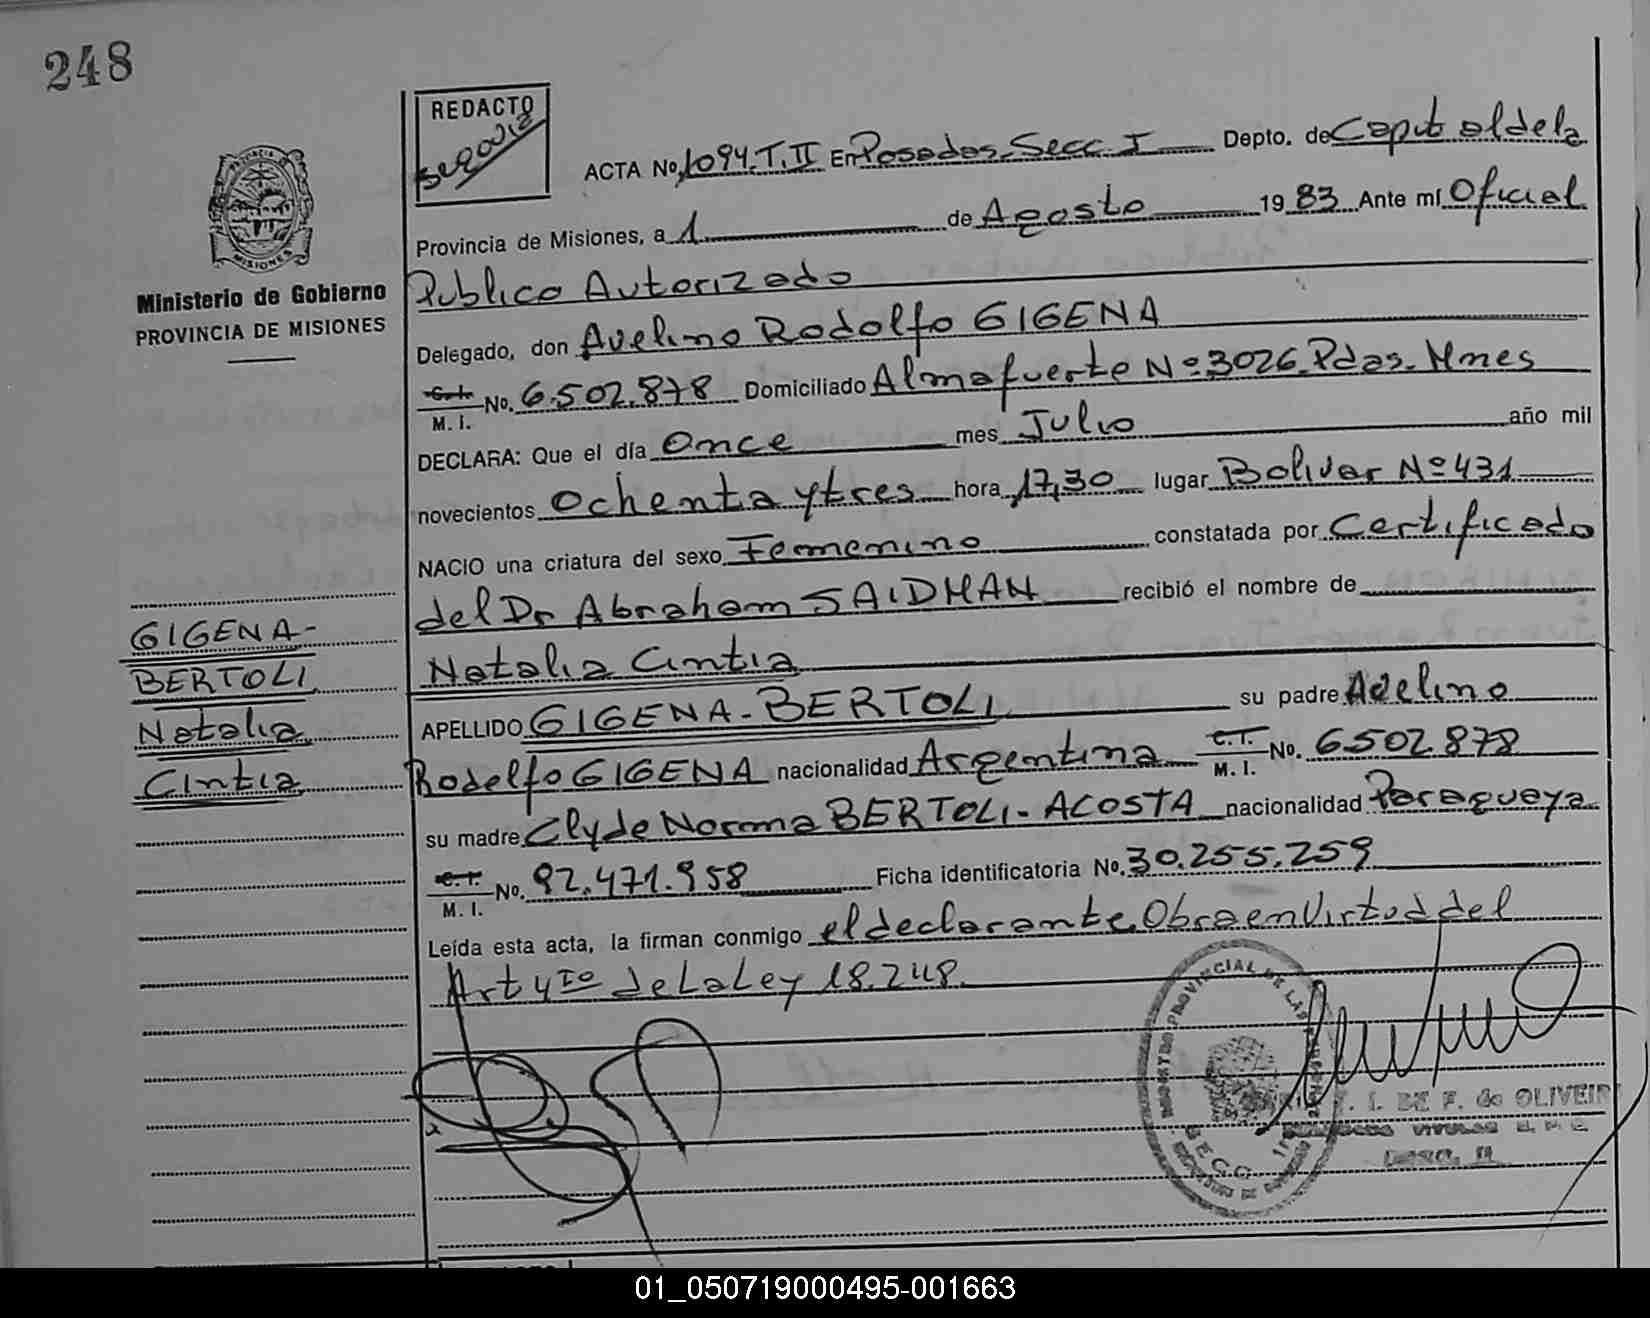 248
REDACTO
Segovia
ACTA No. 1094.T.II En Posadas-Secc. I Depto. de Capital de la
Provincia de Misiones, a 1 de Agosto 19 83 Ante mí Oficial
Publico Autorizado
Delegado, don Avelino Rodolfo GIGENA
C.I. M. I. No. 6.502.878 Domiciliado Almafuerte Nº 3026. Pdas. Mnes
DECLARA: Que el día Once mes Julio año mil
novecientos Ochenta y tres hora 17,30 lugar Bolivar Nº 431
NACIO una criatura del sexo Femenino constatada por Certificado
del Dr Abraham SAIDMAN recibió el nombre de
Natalia Cintia
APELLIDO GIGENA-BERTOLI su padre Adelino
Rodolfo GIGENA nacionalidad Argentina C.I. M. I. No. 6502.878
su madre Clyde Norma BERTOLI-ACOSTA nacionalidad Paraguaya
C.I. M. I. No. 92.471.958 Ficha identificatoria No. 30.255.259
Leída esta acta, la firman conmigo el declarante. Obra en Virtud del
Art 4to de La Ley 18.248.
MISIONES
Ministerio de Gobierno
PROVINCIA DE MISIONES
GIGENA-
BERTOLI
Natalia
Cintia
PROVINCIAL DE LAS
SECC. 1
I. DE F. de OLIVEIR
01_050719000495-001663